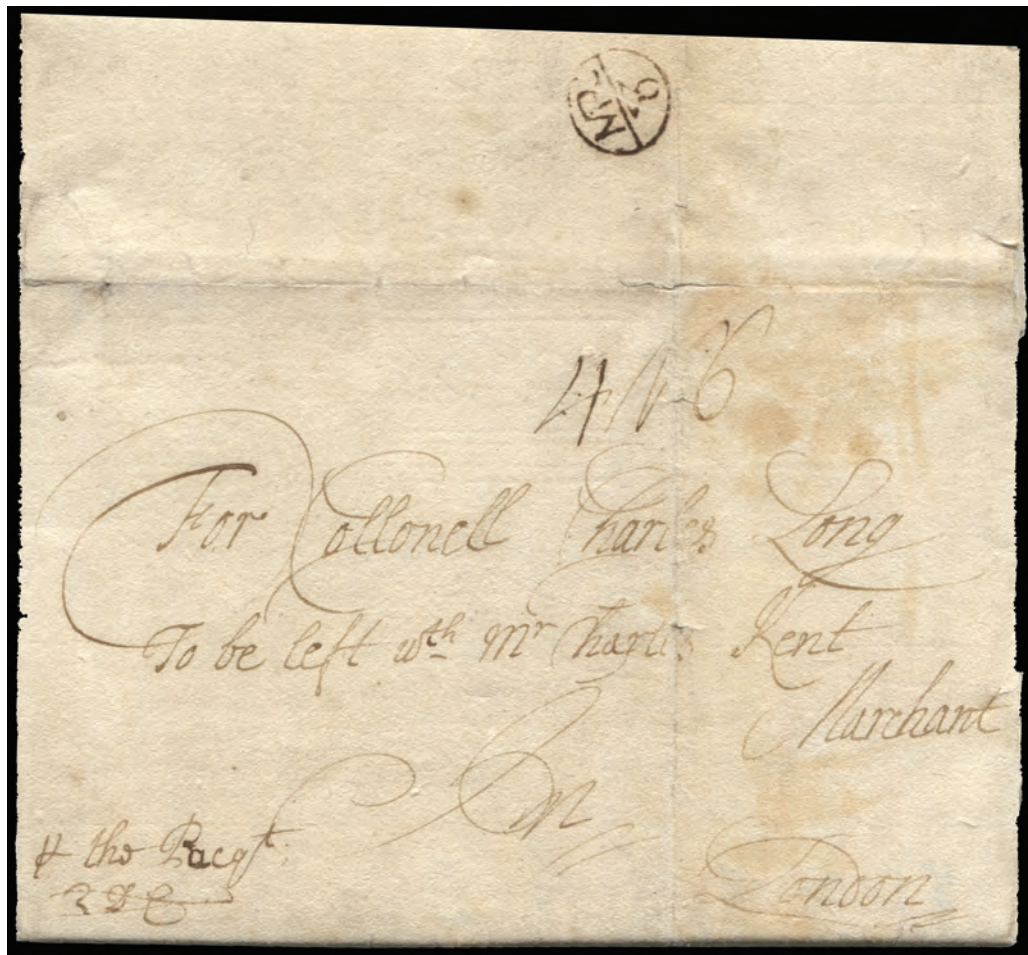 4 N 6
For Collonell Charles Long
To be left wth Mr Charles Kent
Marchant
In
London
the Pacqt